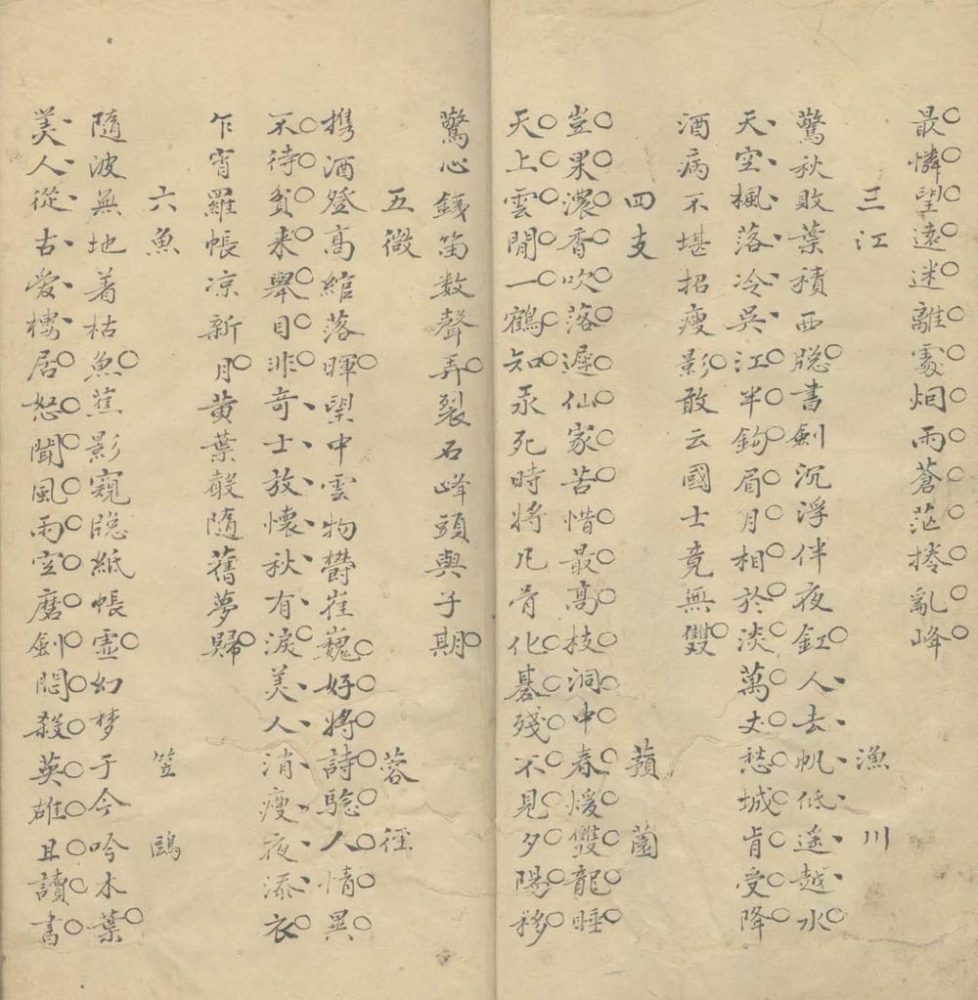 最憐望遠迷離處烟雨蒼茫捲亂峰
三江 漁川
驚秋敗葉積西牕書劍沉浮伴夜釭人去帆低遥越水
天空楓落冷吳江半鉤眉月相於淡萬丈愁城肯受降
酒病不堪招瘦影敢云國士竟無雙
四支 蘋薗
豈果濃香吹落遲仙家苦惜最高枝洞中春煖雙龍睡
天上雲閒一鶴知汞死時將凡骨化棊殘不見夕陽移
驚心鐵笛数聲弄裂石峰頭與子期
五微 蓉徑
携酒登高綰落暉望中雲物欝崔巍好將詩騐人情異
不待貧来舉目非奇士放懷秋有淚美人消瘦夜添衣
乍宵羅帳凉新月黄葉聲隨舊夢歸
六魚 笠鷗
隨波無地着枯魚蕉影窺牕紙帳虛幻梦于今吟木葉
美人從古愛樓居怒聞風雨空磨劍悶殺英雄且讀書